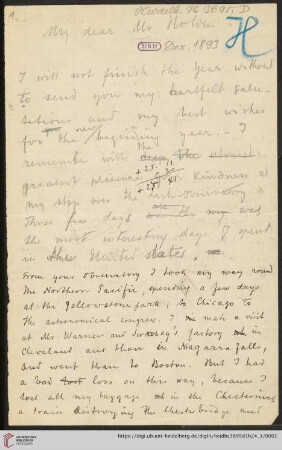 1.
Heidelb. Hs. 3695. D
My dear Mr Holden.
UBH
Dez. 1893
H
I will not finish the Year without
to send you my heartfelt salu-
tations and my best wishes
for the new beginning year. - I
remember with the
greatest pleasure kindness at
my stop over the Lick Observatory
Those few days was
the most interesting days I spent
in the United States.
From your Observatory I took my way round
the Northern Pacific, spending a few days
at the Yellowstonepark, to Chicago to
the astronomical congress. I made a visit
at Mr. Warner and Swasey's factory in
Cleveland and then in Niagarafalls,
and went then to Boston. But I had
a bad loss on this way, because I
lost all my luggage in the Chesterning
a train destroying the Chesterbridge and
http://digi.ub.uni-heidelberg.de/diglit/heidhs3695dh24_3/0001